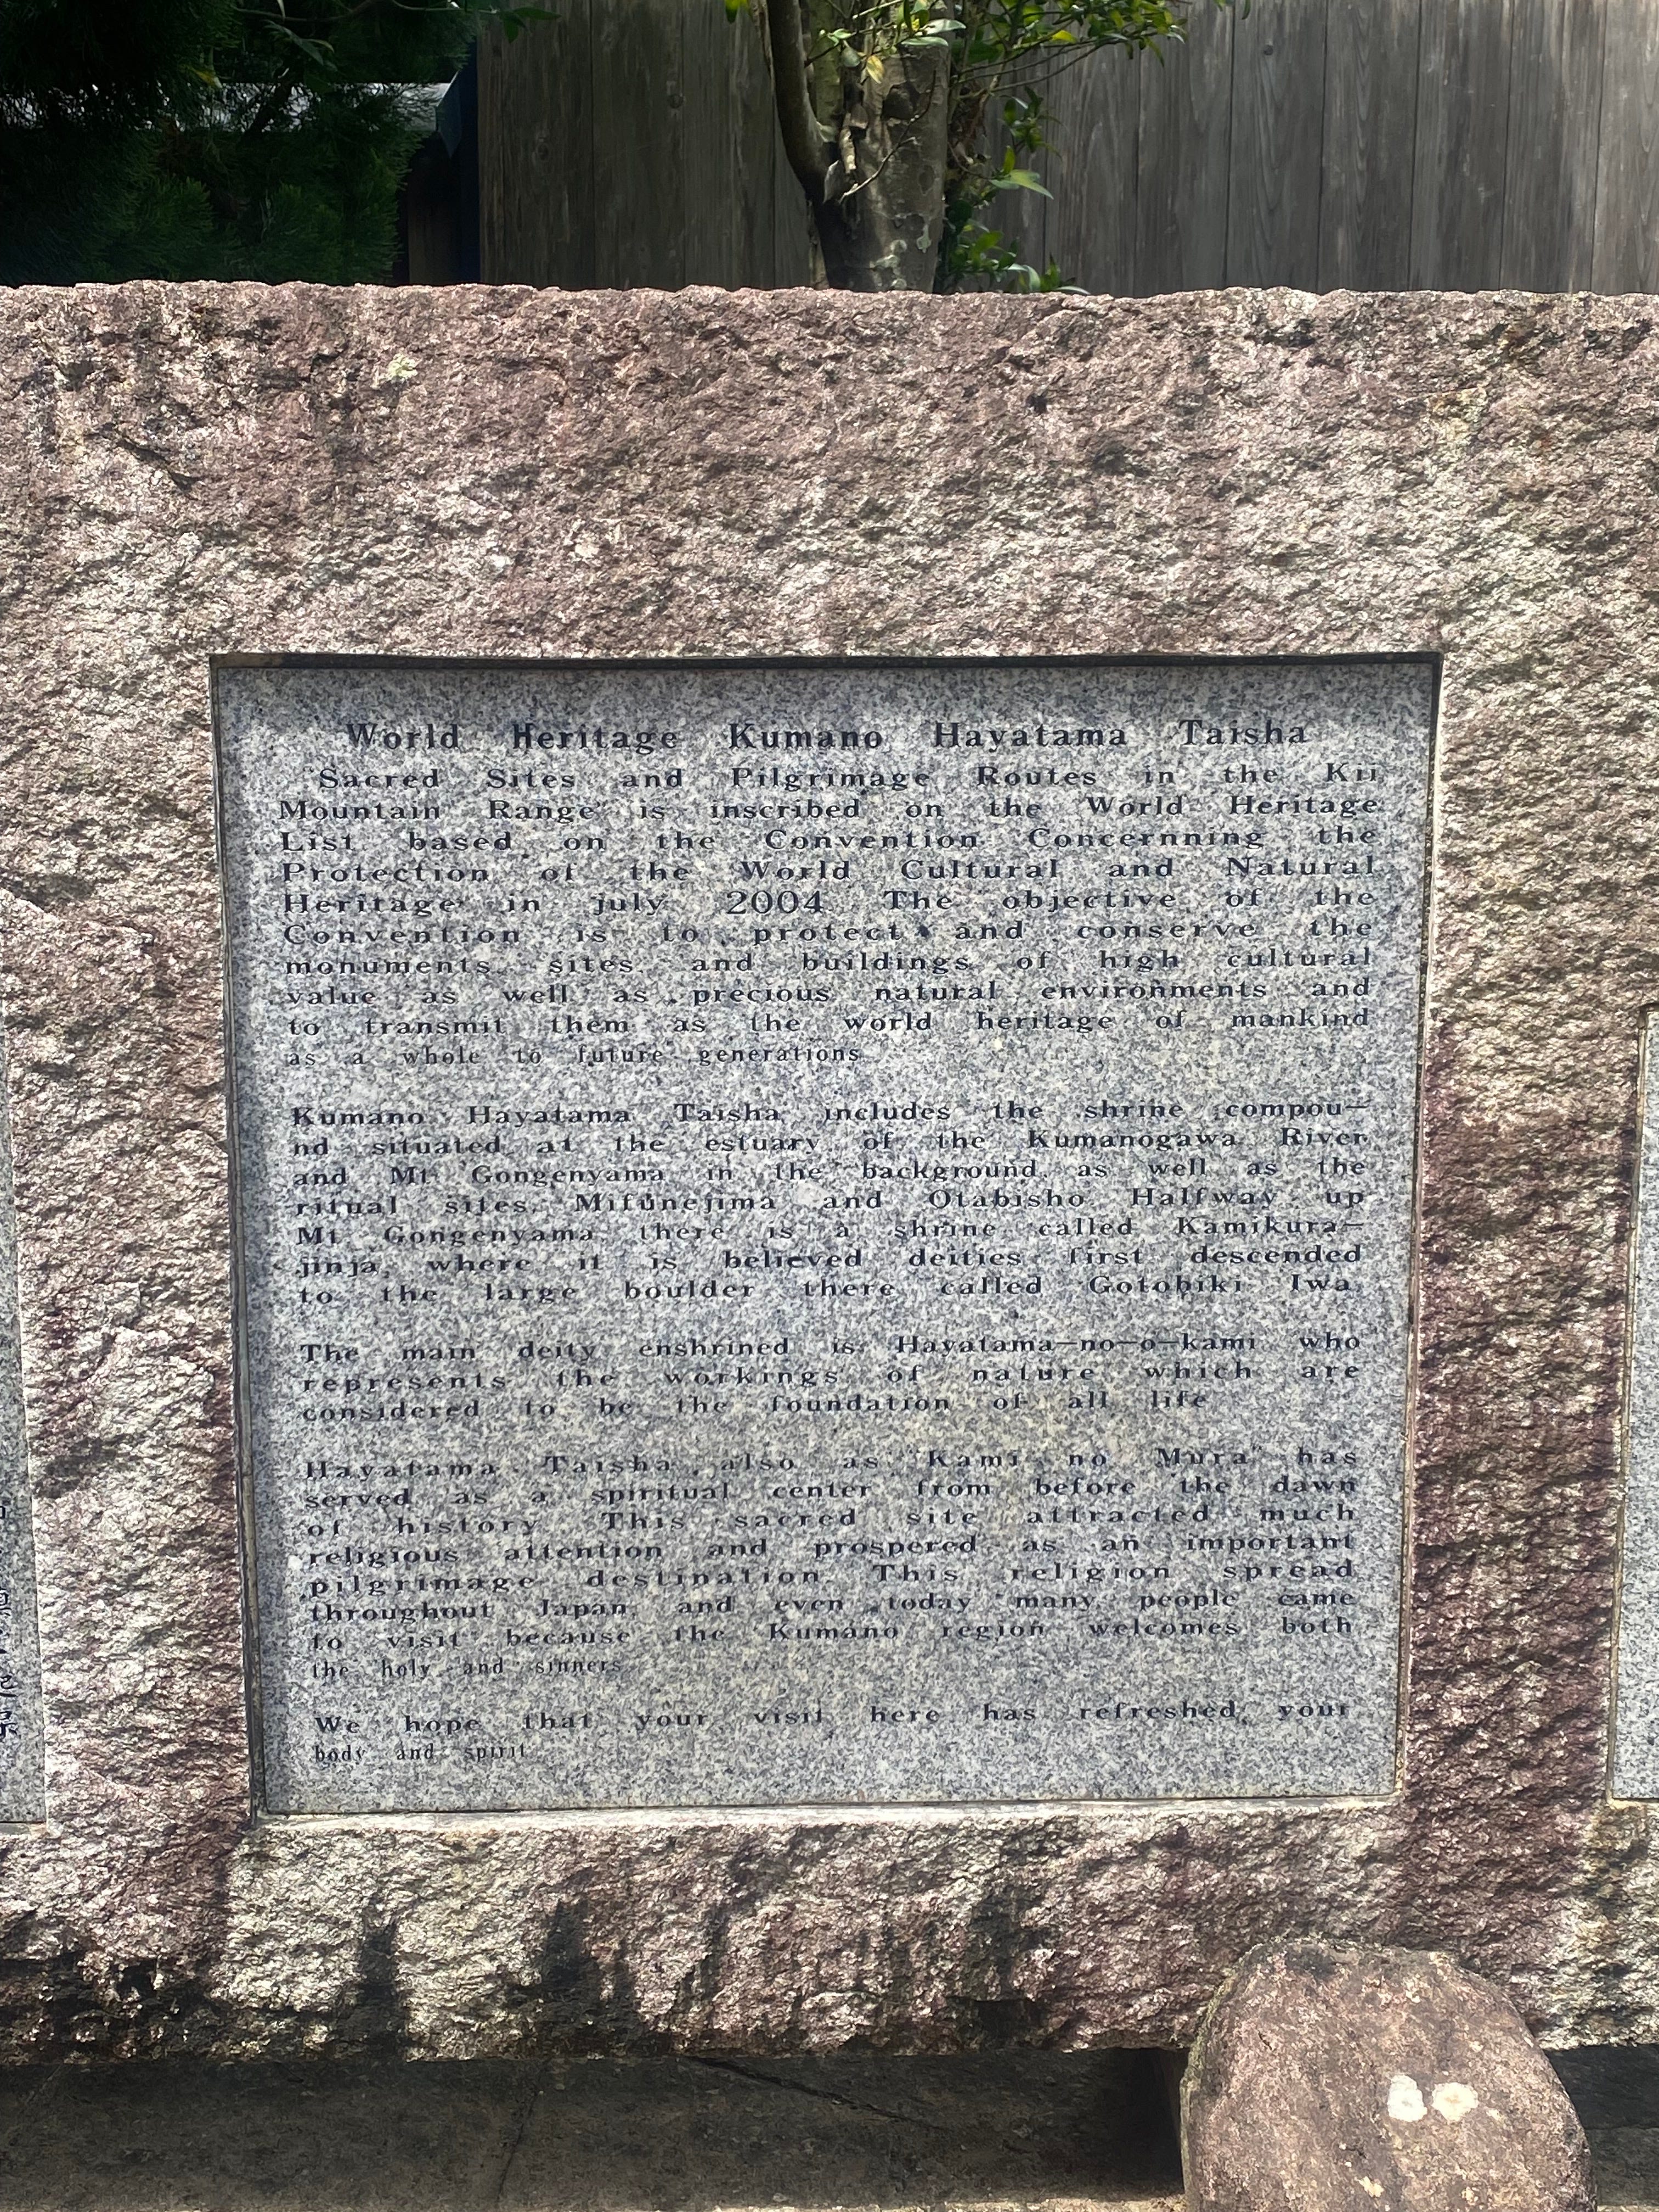 World Heritage Kumano Hayatama Taisha
"Sacred Sites and Pilgrimage Routes in the Kii
Mountain Range" is inscribed on the World Heritage
List based on the Convention Concernning the
Protection of the World Cultural and Natural
Heritage in july 2004. The objective of the
Convention is to protect and conserve the
monuments, sites, and buildings of high cultural
value as well as precious natural environments and
to transmit them as the world heritage of mankind
as a whole to future generations.
Kumano Hayatama Taisha includes the shrine compou-
nd situated at the estuary of the Kumanogawa River
and Mt. Gongenyama in the background, as well as the
ritual sites, Mifunejima and Otabisho. Halfway up
Mt. Gongenyama there is a shrine called Kamikura-
jinja, where it is believed deities first descended
to the large boulder there called Gotobiki Iwa.
The main deity enshrined is Hayatama-no-o-kami who
represents the workings of nature which are
considered to be the foundation of all life.
Hayatama Taisha, also as "Kami no Mura" has
served as a spiritual center from before the dawn
of history. This sacred site attracted much
religious attention and prospered as an important
pilgrimage destination. This religion spread
throughout Japan, and even today many people came
to visit because the Kumano region welcomes both
the holy and sinners.
We hope that your visit here has refreshed, your
body and spirit.